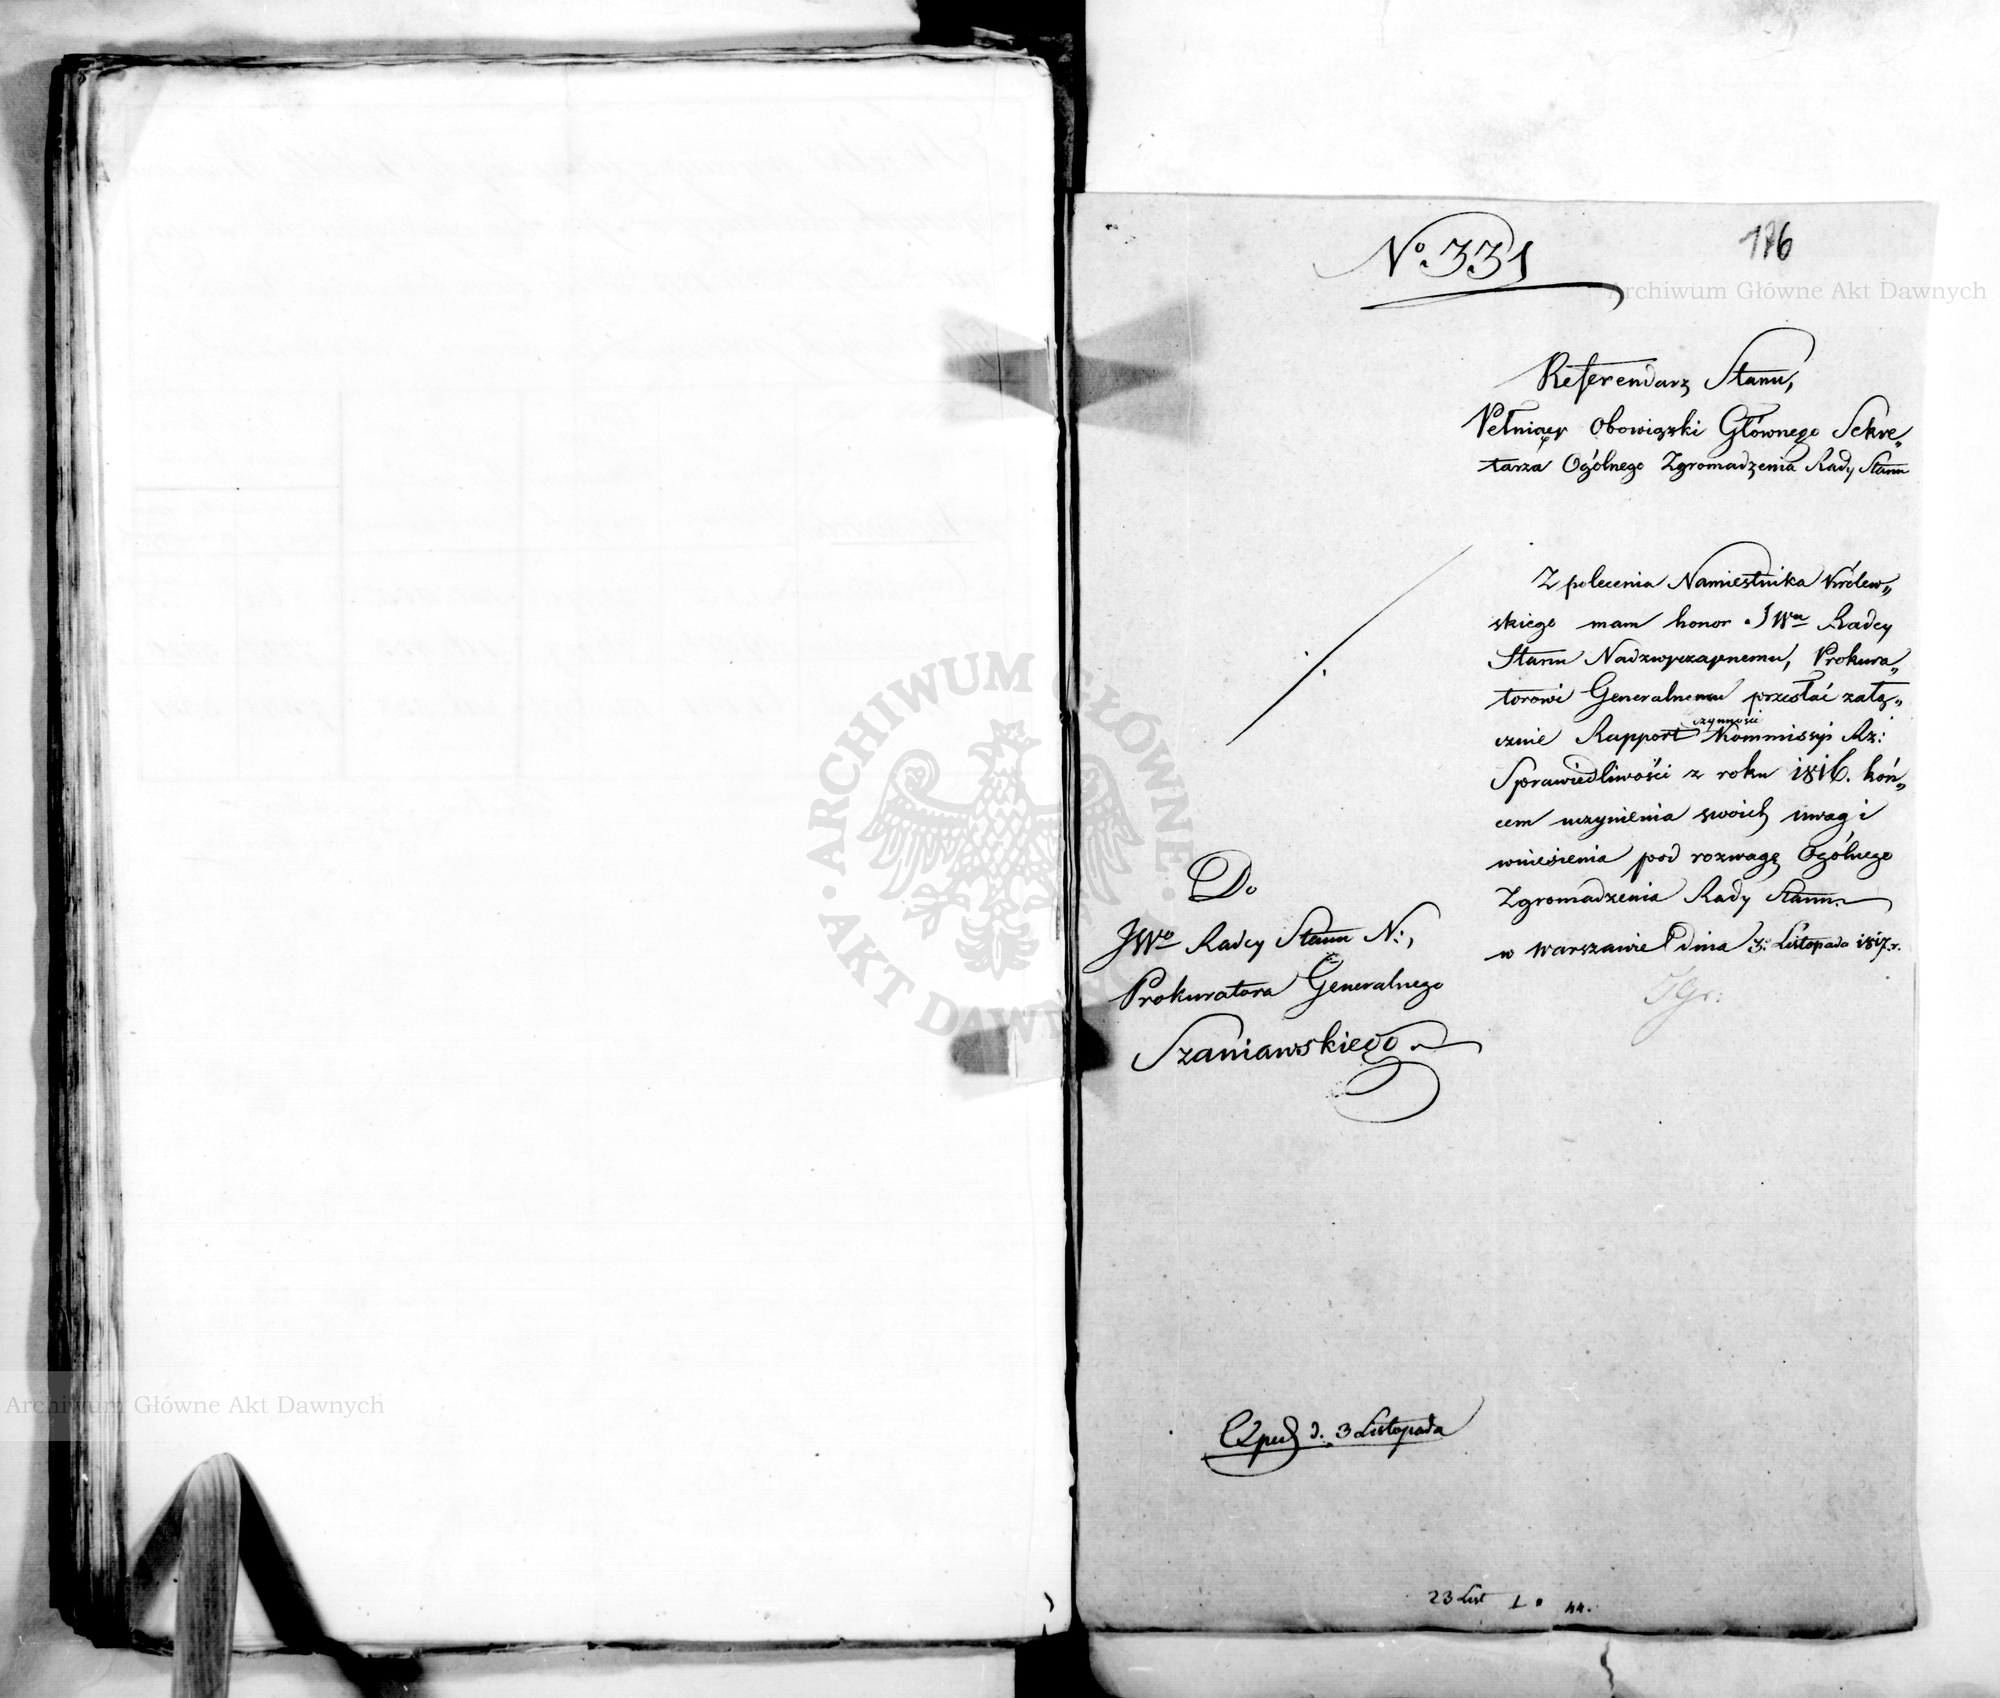 No. 331
176
Referendarz Stanu,
Pełniący Obowiązki Głównego Sekre„
tarza Ogólnego Zgromadzenia Rady Stanu
Z polecenia Namiestnika Królew„
skiego mam honor JWu Radcy
Stanu Nadzwyczajnemu, Prokura„
torowi Generalnemu przesłać załą„
cznie Rapport czynności Kommissyi Rz:
Sprawiedliwości z roku 1816. koń„
cem uczynienia swoich uwag i
wniesienia pod rozwagę Ogólnego
Zgromadzenia Rady Stanu.
w Warszawie dnia 3. Listopada 1817. r.
Do
JWo Radcy Stanu N:,
Prokuratora Generalnego
Szaniawskiego.
Exped d. 3 Listopada
23 List
Archiwum Główne Akt Dawnych
Archiwum Główne Akt Dawnych
ARCHIWUM GŁÓWNE
AKT DAWNYCH